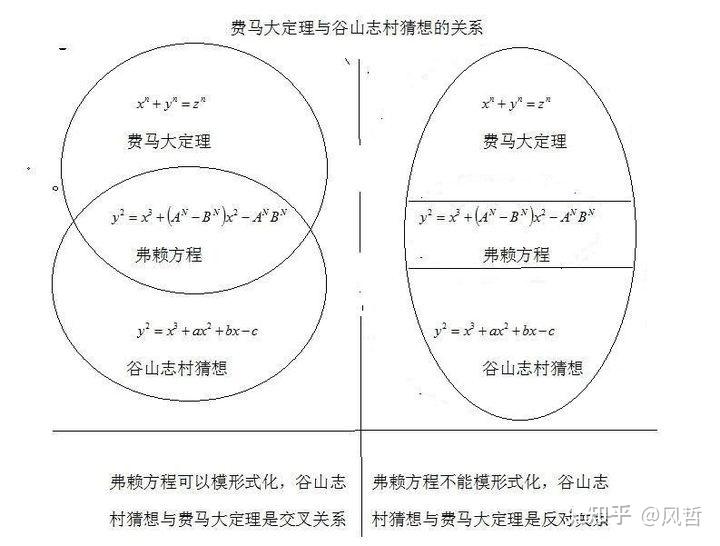 费马大定理与谷山志村猜想的关系
xⁿ + yⁿ = zⁿ
费马大定理
y² = x³ + (Aᴺ − Bᴺ)x² − AᴺBᴺ
弗赖方程
y² = x³ + ax² + bx − c
谷山志村猜想
弗赖方程可以模形式化，谷山志
村猜想与费马大定理是交叉关系
xⁿ + yⁿ = zⁿ
费马大定理
y² = x³ + (Aᴺ − Bᴺ)x² − AᴺBᴺ
弗赖方程
y² = x³ + ax² + bx − c
谷山志村猜想
弗赖方程不能模形式化，谷山志
村猜想与费马大定理是反对
知乎 @风哲